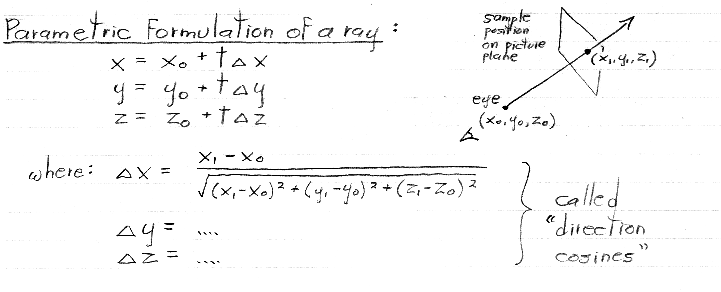 Parametric Formulation of a ray :
x = x₀ + t Δx
y = y₀ + t Δy
z = z₀ + t Δz
sample
position
on picture
plane
(x₁, y₁, z₁)
eye
(x₀, y₀, z₀)
where: Δx = x₁ - x₀ / √(x₁-x₀)² + (y₁-y₀)² + (z₁-z₀)²
Δy = ....
Δz = ....
called
"direction
cosines"